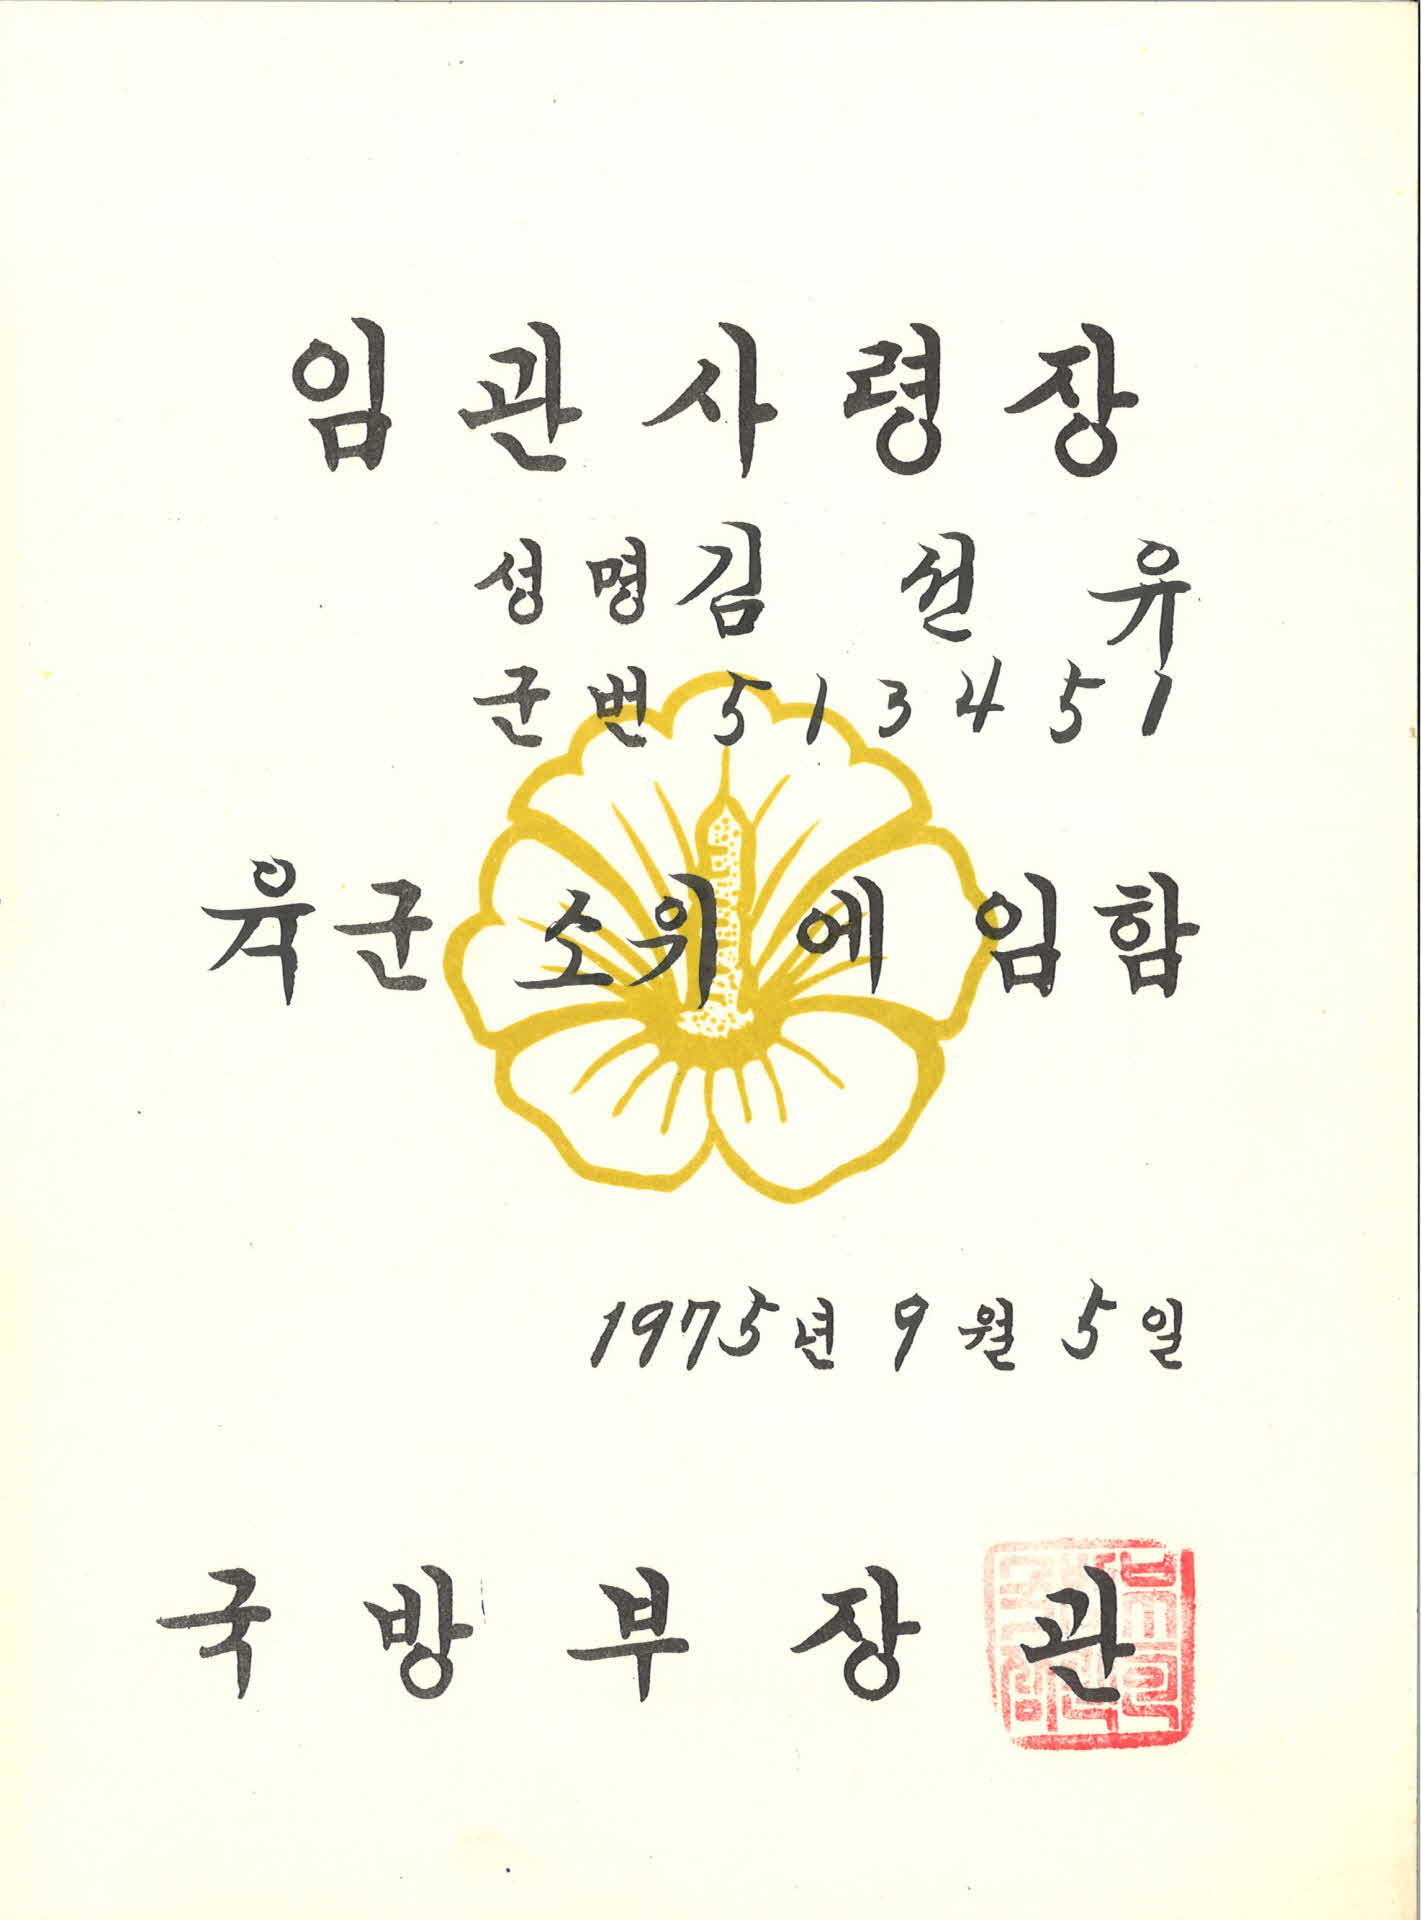 임관사령장
성명 김선유
군번 513451
육군 소위에 임함
1975년 9월 5일
국방부장관